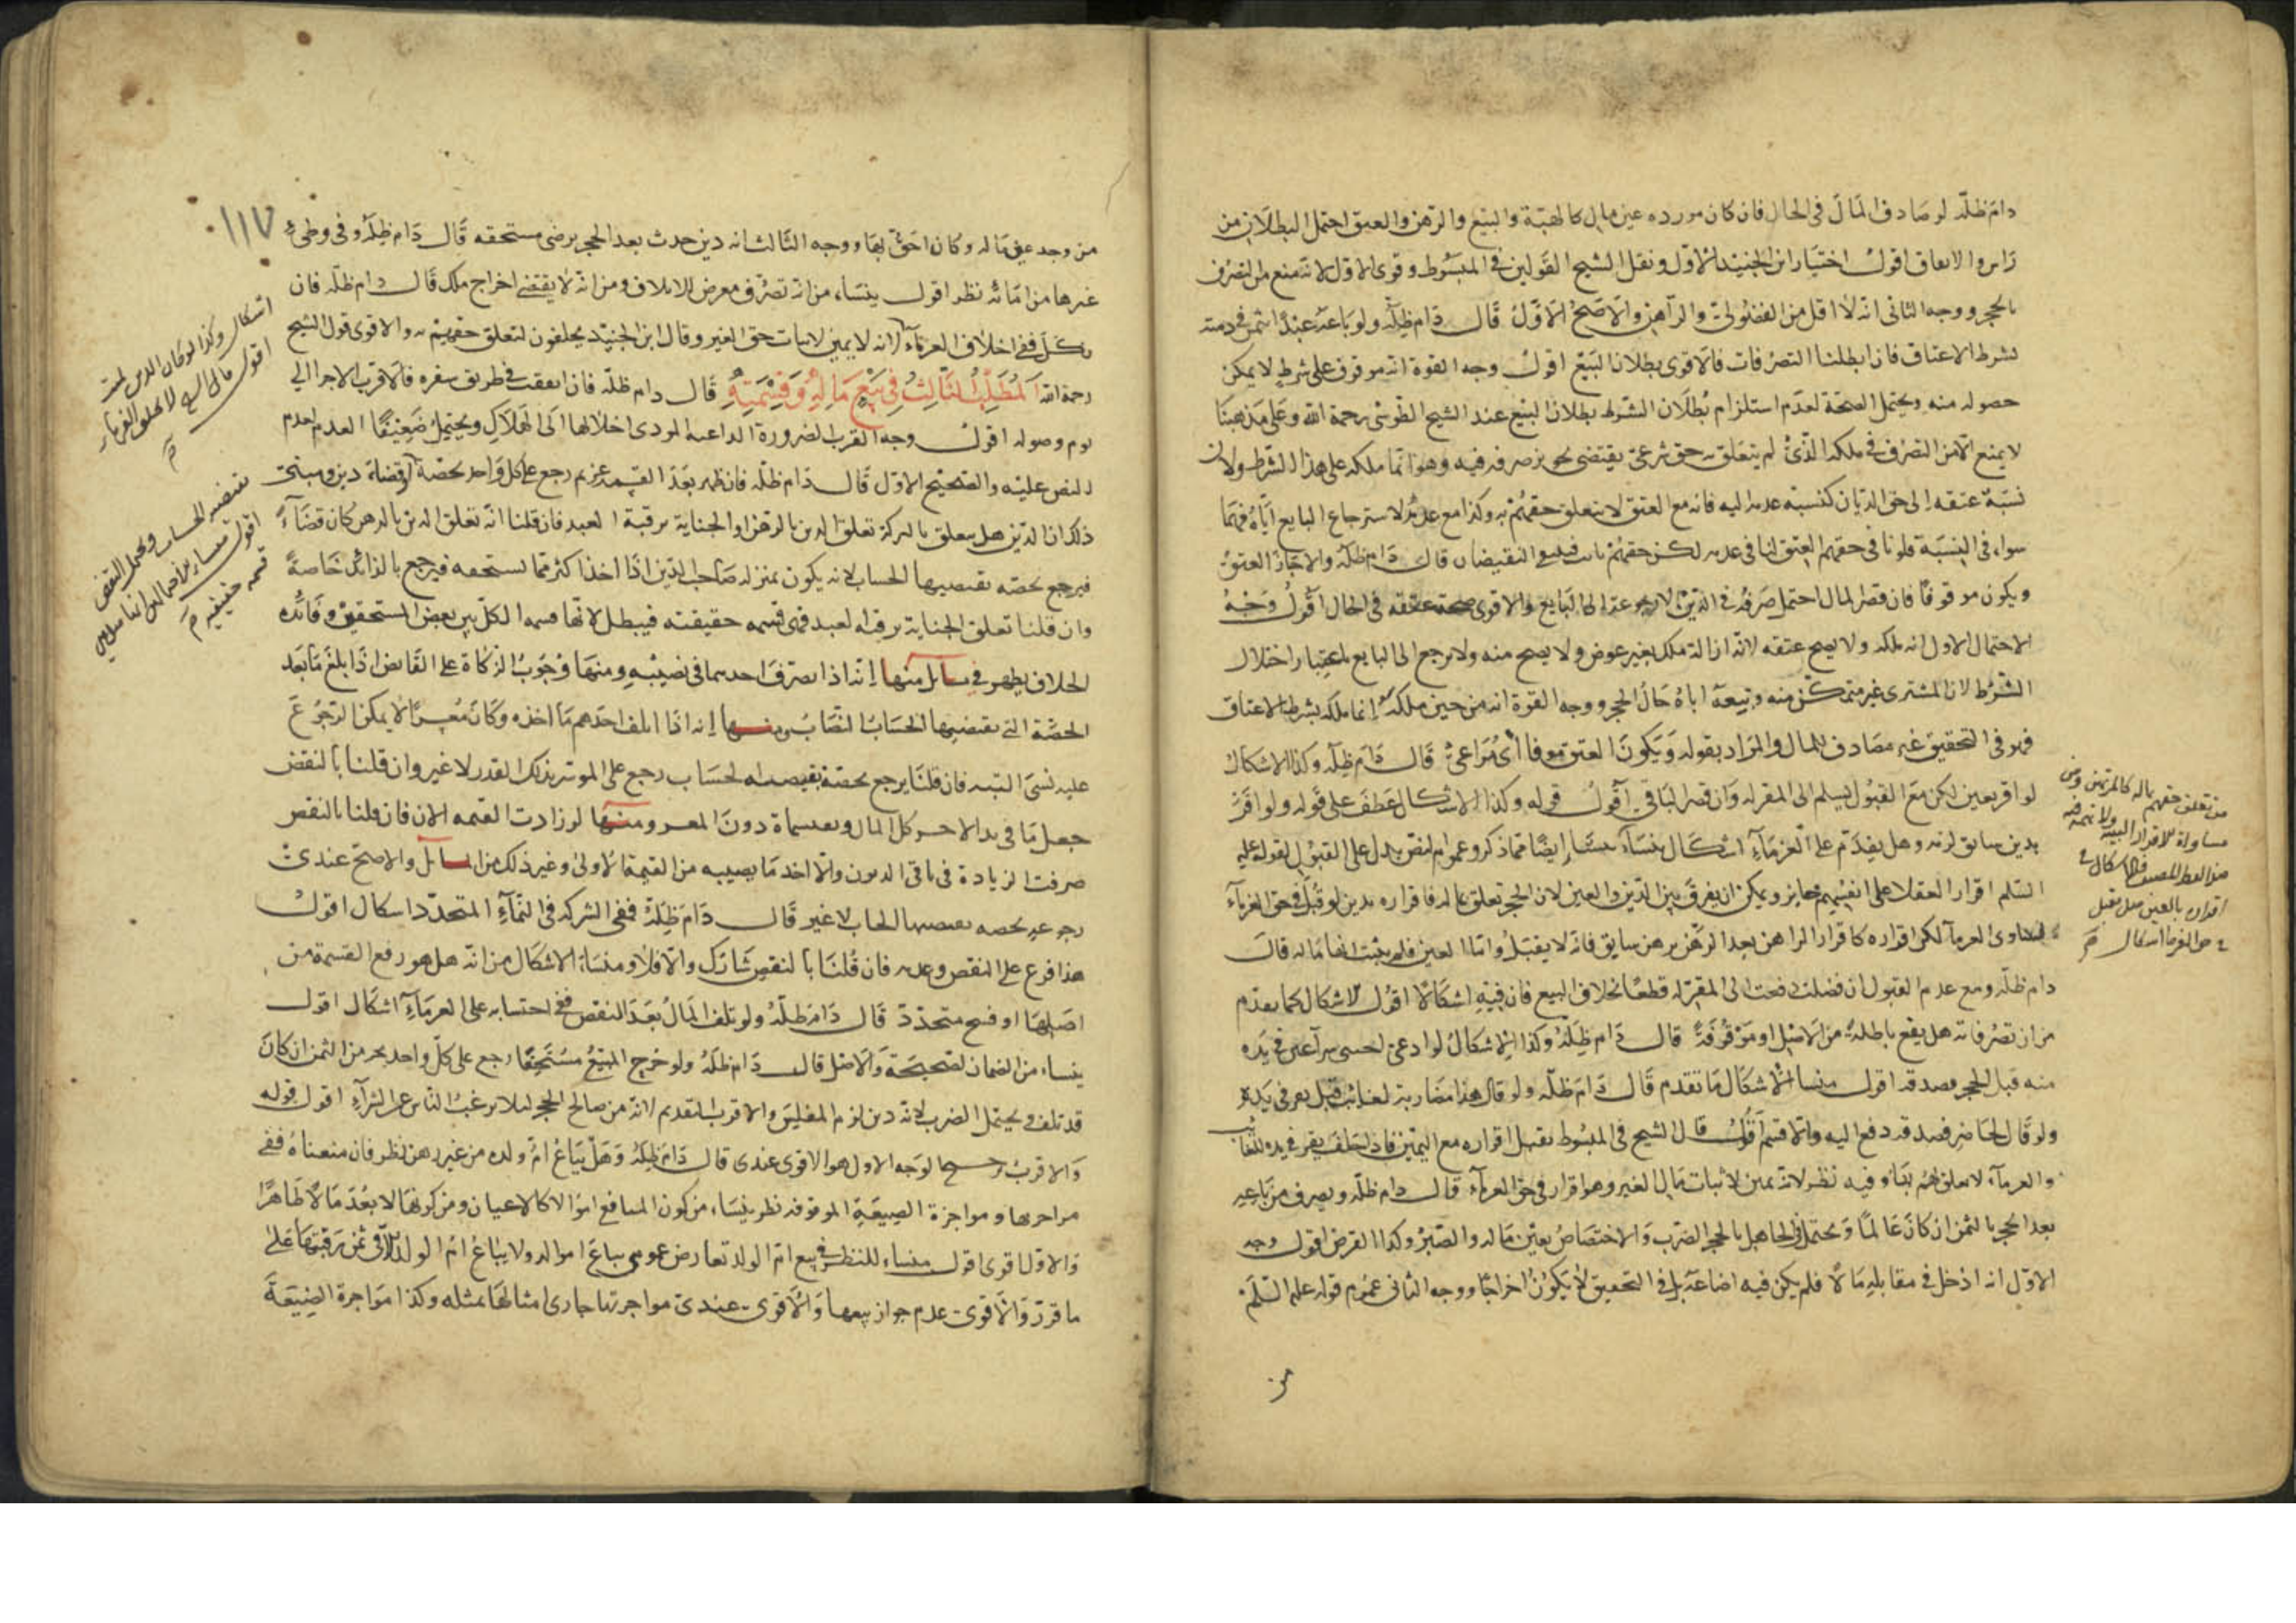 دام ظله لو صادف المال في الحال فان كان مورده عين مال كالهبة والبيع والرهن والعتق احتمل البطلان من
راس والايقاف اقول اختيار ابن الجنيد الاول ونقل الشيخ القولين في المبسوط وقوى الاول لانه ممنوع من التصرف
بالحجر ووجه الثاني انه لا اقل من الفضولي والراهن والاصح الاول قال دام ظله ولو باعه عبدا بثمن في ذمته
بشرط الاعتاق فان ابطلنا التصرفات فالاقوى بطلان البيع اقول وجه القوة انه موقوف على شرط لا يمكن
حصوله منه ويحتمل الصحة لعدم استلزام بطلان الشرط بطلان البيع عند الشيخ الطوسي رحمة الله وعلى مذهبنا
لا يمنع الا من التصرف في ملكه الذي لم يتعلق به حق شرعي يقتضي صرفه فيه وهو انما ملكه على هذا الشرط ولان
نسبة عتقه الى حق الديان كنسبة عدمه اليه فانه مع العتق لا يتعلق حقهم به وكذا مع عدمه لاسترجاع البايع اياه فهما
سواء في النسبة فلو نافى حقهم العتق لنافى عدمه لكن حقهم ثابت النقيضان قال دام ظله والاجاز العتق
ويكون موقوفا فان قصر المال احتمل صرفه في الدين لا رجوعه الى البايع والاقوى صحة عتقه في الحال اقول وجه
الاحتمال الاول انه ملكه ولا يصح عتقه لانه ازالة ملك بغير عوض ولا يصح منه ولا يرجع الى البايع باعتبار اختلال
الشرط لان المشتري غير متمكن منه وبيعه اياه حال الحجر ووجه القوة انه من حين ملكه انما ملكه بشرط الاعتاق
فهو في التحقيق غير مصادف للمال والمراد بقوله ويكون العتق موقوفا اي مراعى قال دام ظله وكذا الاشكال
لو اقر بعين لكن مع القبول يسلم الى المقر له وان قصر الباقي اقول قوله وكذا الاشكال عطف على قوله ولو اقر
بدين سابق لزمه وهل يقدم على الغرماء اشكال ينشأ ايضا مما ذكر وعموم النص يدل على القبول لقوله عليه
السلم اقرار العقلاء على انفسهم جايز ويمكن ان يفرق بين الدين والعين لان الحجر تعلق بماله فاقراره بدين لو قبل في حق الغرماء
الغرماء لكن اقراره كاقرار الراهن بعد الرهن برهن سابق فانه لا يقبل واما العين فلم يثبت انها ماله قال
دام ظله ومع عدم القبول ان فضلت دفعت الى المقر له قطعا بخلاف البيع فان فيه اشكالا اقول الاشكال كما تقدم
من ان تصرفاته هل يقع باطلة من الاصل او موقوفة قال دام ظله وكذا الاشكال لو ادعى اجنبي شراء عين في يده
منه قبل الحجر فصدقه اقول منشأ الاشكال ما تقدم قال دام ظله ولو قال هذا مضاربة لغائب قبل يقر في يده
ولو قال لحاضر فصدقه دفع اليه والا قسم اقول قال الشيخ في المبسوط يقبل اقراره مع اليمين فاذا حلف يقر في يده للغائب
والغرماء لا تعلق لهم بها وفيه نظر لانه يمين لاثبات مال الغير وهو اقرار في حق الغرماء قال دام ظله ويصرف من باعه
بعد الحجر بالثمن ان كان عالما ويحتمل في الجاهل بالحجر الضرب والاختصاص بعين ماله والصبر وكذا القرض اقول وجه
الاول انه ادخل في مقابله مالا فلم يكن فيه اضاعة بل في التحقيق لا يكون اخراجا ووجه الثاني عموم قوله عليه السلم
من
من تعلق حقهم بماله كالمرتهن ومن
مساواة الاقرار البينة ولا تهمة فيه
١١٧
من وجد عين ماله وكان احق بها ووجه الثالث انه دين حدث بعد الحجر برضى مستحقه قال دام ظله وفي وطىء
غيرها من امائه نظر اقول ينشأ من انه تصرف معرض للاتلاف ومن انه لا يقتضي اخراج ملك قال دام ظله فان
نكل ففي احلاف الغرماء انه لا يمين لاثبات حق الغير وقال ابن الجنيد يحلفون لتعلق حقهم به والاقوى قول الشيخ
رحمه الله المطلب الثالث في بيع ماله وقسمته قال دام ظله فان اتفقت في طريق سفره فالاقرب الاجراء الى
يوم وصوله اقول وجه القرب الضرورة الداعية المودي اخلالها الى الهلاك ويحتمل ضعيفا العدم لعدم
النص عليه والصحيح الاول قال دام ظله فان ظهر بعد القسمة غريم رجع على كل واحد بحصة اقول
ذلك ان الدين هل يتعلق بالتركة تعلق الدين بالرهن او الجناية برقبة العبد فان قلنا انه تعلق الدين بالرهن كان قضاء
فيرجع بحصة يقتضيها الحساب لانه يكون بمنزلة صاحب الدين اذا اخذ اكثر مما يستحقه فيرجع بالزائد خاصة
وان قلنا تعلق الجناية برقبة العبد فهي قسمة حقيقية فيبطل لانها قسمة الكل بين بعض المستحقين وفائدة
الخلاف يظهر في مسائل منها انه اذا تصرف احدهما في نصيبه ومنها وجوب الزكاة على القابض اذا بلغ ما بعد
الحصة التي يقتضيها الحساب النصاب ومنها انه اذا اتلف احدهم ما اخذه وكان معسرا لا يمكن الرجوع
عليه بشيء البتة فان قلنا يرجع بحصة يقتضيها الحساب رجع على الموسر بذلك القدر لا غير وان قلنا بالنقض
جعل ما في يد الاخر كل المال ويقسماه دون المعسر ومنها لو زادت القيمة الان فان قلنا بالنقض
صرفت الزيادة في باقي الديون والا اخذ ما يصيبه من القيمة الاولى وغير ذلك من المسائل والاصح عندي
رجوعه بحصة يقتضيها الحساب لا غير قال دام ظله ففي الشركة في النماء المتجدد اشكال اقول
هذا فرع على النقض وعدمه فان قلنا بالنقض شارك والا فلا ومنشأ الاشكال من انه هل هو رفع القسمة من
اصلها او فسخ متجدد قال دام ظله ولو تلف المال بعد النقض ففي احتسابه على الغرماء اشكال اقول
ينشأ من الضمان لصحيحة والاصل قال دام ظله ولو خرج المبيع مستحقا رجع على كل واحد بجزء من الثمن ان كان
قد تلف ويحتمل الضرب لانه دين لزم المفلس والاقرب التقديم لانه من صالح الحجر لئلا يرغب الناس عن الشراء اقول قوله
والاقرب ترجيح الوجه الاول هو الاقوى عندي قال دام ظله وهل يباع ام ولده من غير رهن نظر فان منعناه ففي
مواجرتها ومواجرة الضيعة الموقوفة نظر ينشأ من كون المنافع اموالا كالاعيان ومن كونها لا يعد مالا ظاهرا
والاول اقوى اقول منشأ النظر في بيع ام الولد تعارض عمومي يباع امواله ولا يباع ام الولد الا في ثمن رقبتها على
ما قرر والاقوى عدم جواز بيعها والاقوى عندي مواجرتها جارى امثالها بمثله وكذا مواجرة الضيعة
اشكال وكذا لو كان الدين لميت
اقول
يقتضيه الحساب ويحتمل النقض
اقول
قسمة حقيقية